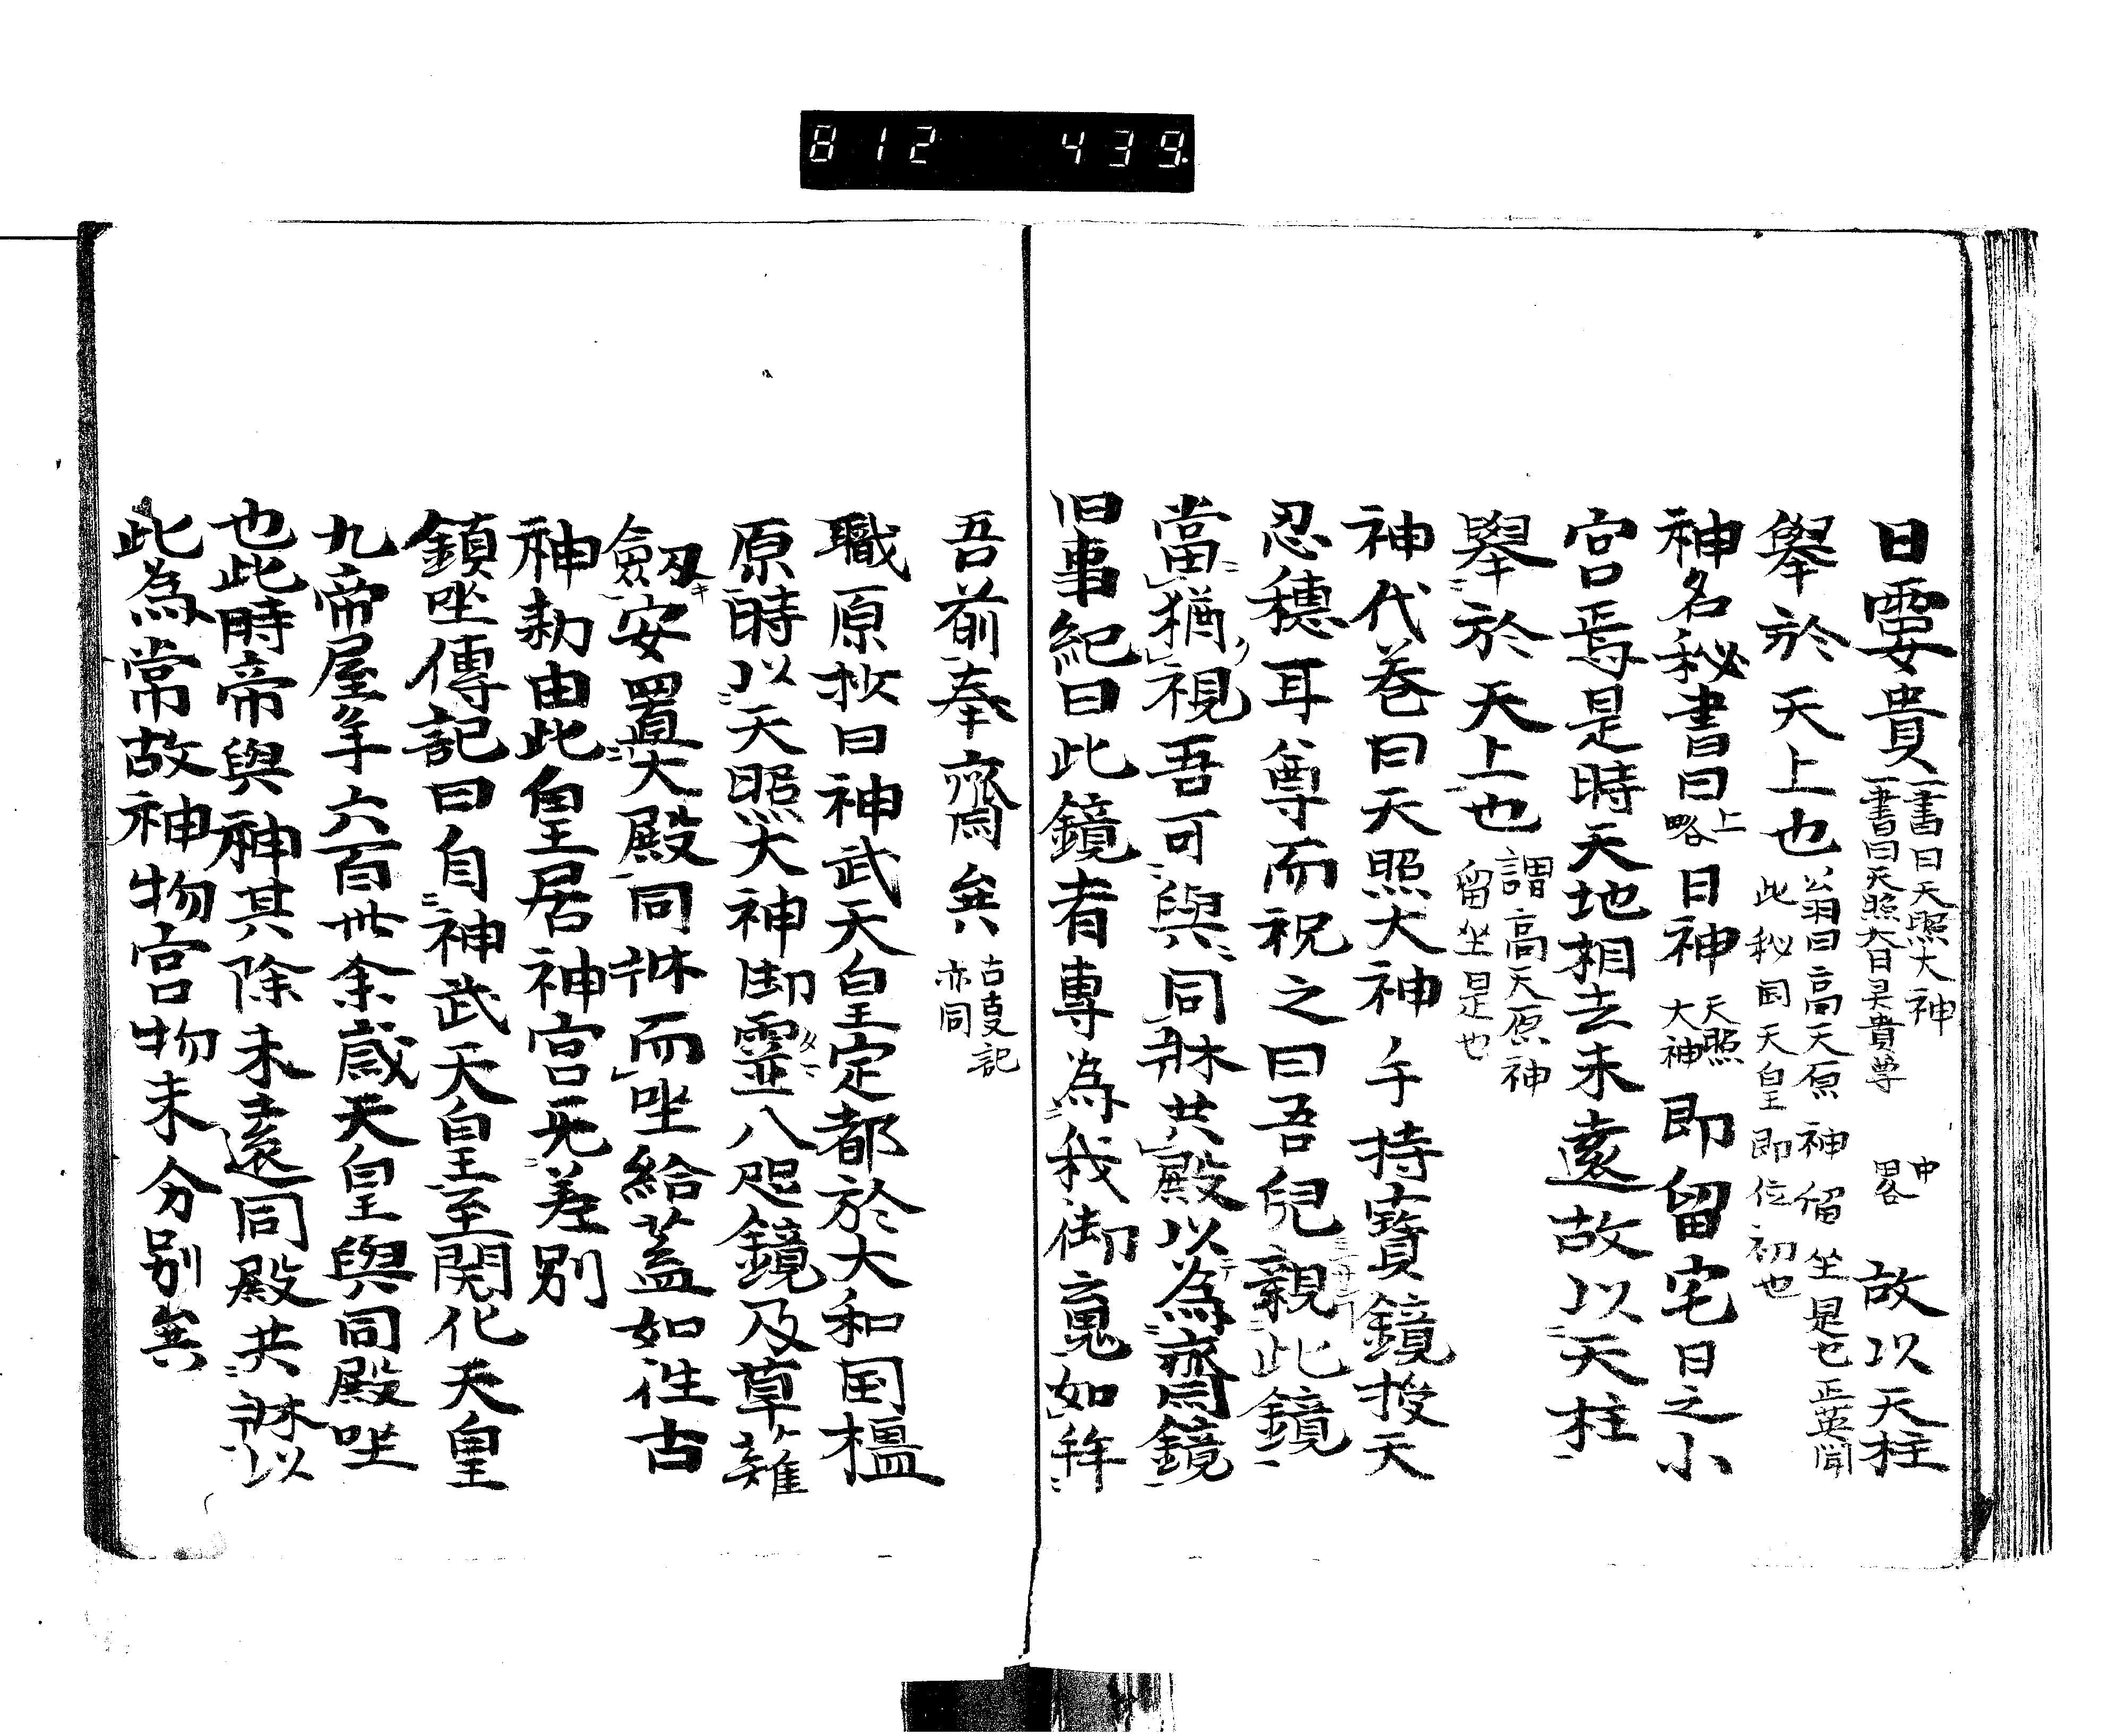 812 439
日孁貴一書曰天照大神一書曰天照大日孁貴尊中畧故以天柱
擧於天上也翁曰高天原神留坐是也正英聞此秘因天皇即位初也
神名秘書曰上略日神天照大神即留宅日之小
宮焉是時天地相去未遠故以天柱
擧於天上也謂高天原神留坐是也
神代巻曰天照大神手持寶鏡授天
忍穗耳尊而祝之曰吾兒親此鏡
當猶視吾可與同床共殿以為齋鏡
旧事紀曰此鏡者專為我御䰟如拜
吾前奉齋矣古事記亦同
職原抄曰神武天皇定都於大和国橿
原時以天照大神御霊八咫鏡及草薙
劔安置大殿同牀而坐給蓋如往古
神勅由此皇居神宮旡差別
鎮坐傳記曰自神武天皇至開化天皇
九帝歴年六百卅余歳天皇與同殿坐
也此時帝與神其際未遠同殿共牀以
此為常故神物宮物未分別矣